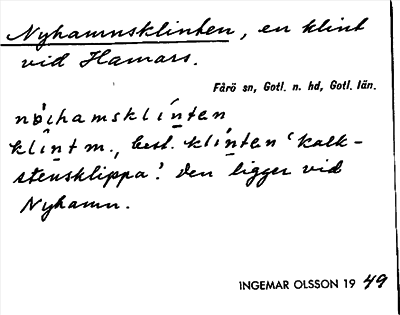 Nyhamnsklinten, en klint
vid Hamars.
Fårö sn, Gotl. n. hd, Gotl. län.
klint m., best. klinten 'kalk-
stensklippa'. Den ligger vid
Nyhamn.
INGEMAR OLSSON 19 49